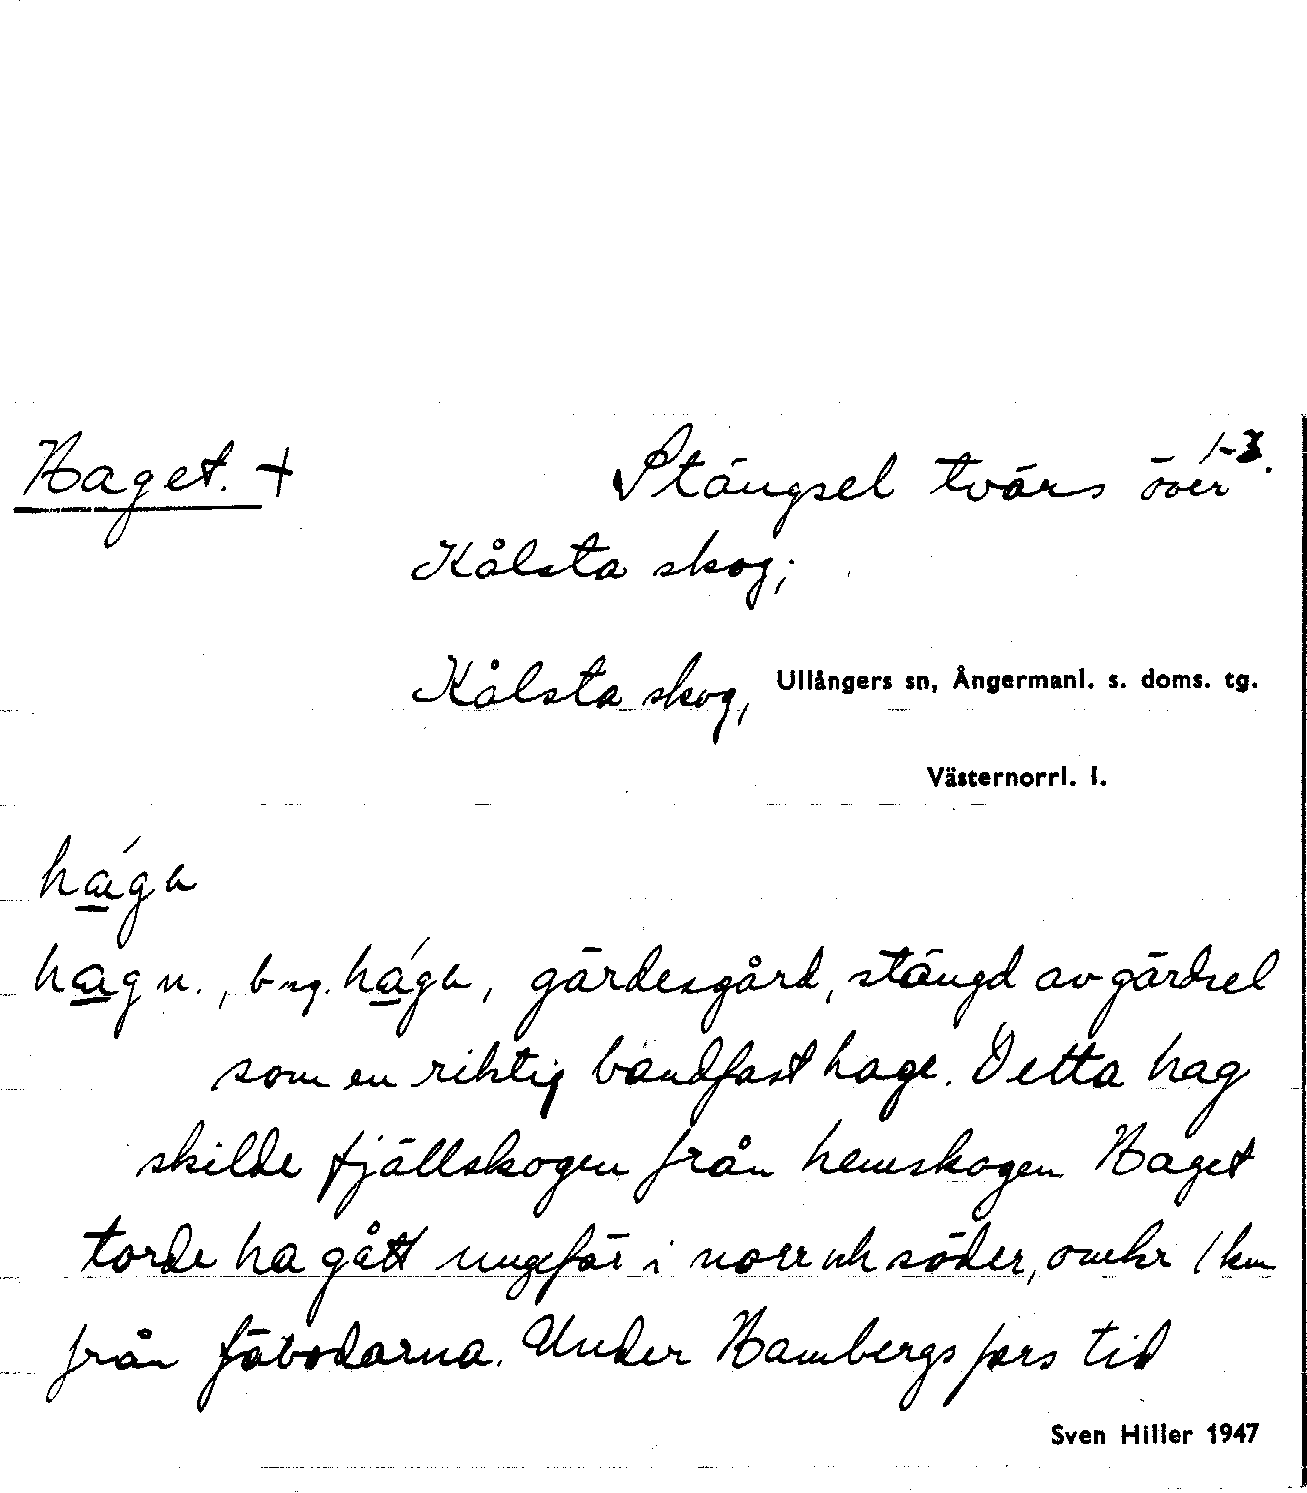 1-3.
Haget. + Stängsel tvärs över
Kålsta skog;
Kålsta skog, Ullångers sn, Ångermanl. s. doms. tg.
Västernorrl. l.
hága
hag n., b. sg. hága, gärdesgård, stängd av gärdsel
som en riktig bandfast hage. Detta hag
skilde fjällskogen från hemskogen Haget
torde ha gått ungefär i norr och söder, omkr 1 km
från fäbodarna. Under Hambergs fars tid
Sven Hiller 1947